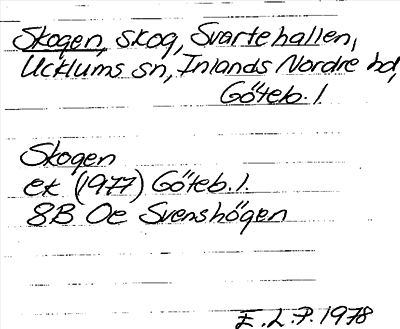 Skogen, skog, Svartehallen,
Ucklums sn, Inlands Nordre hd,
Göteb. l.
Skogen
ek (1977) Göteb. l.
8B Oe Svenshögen
E. L. P. 1978